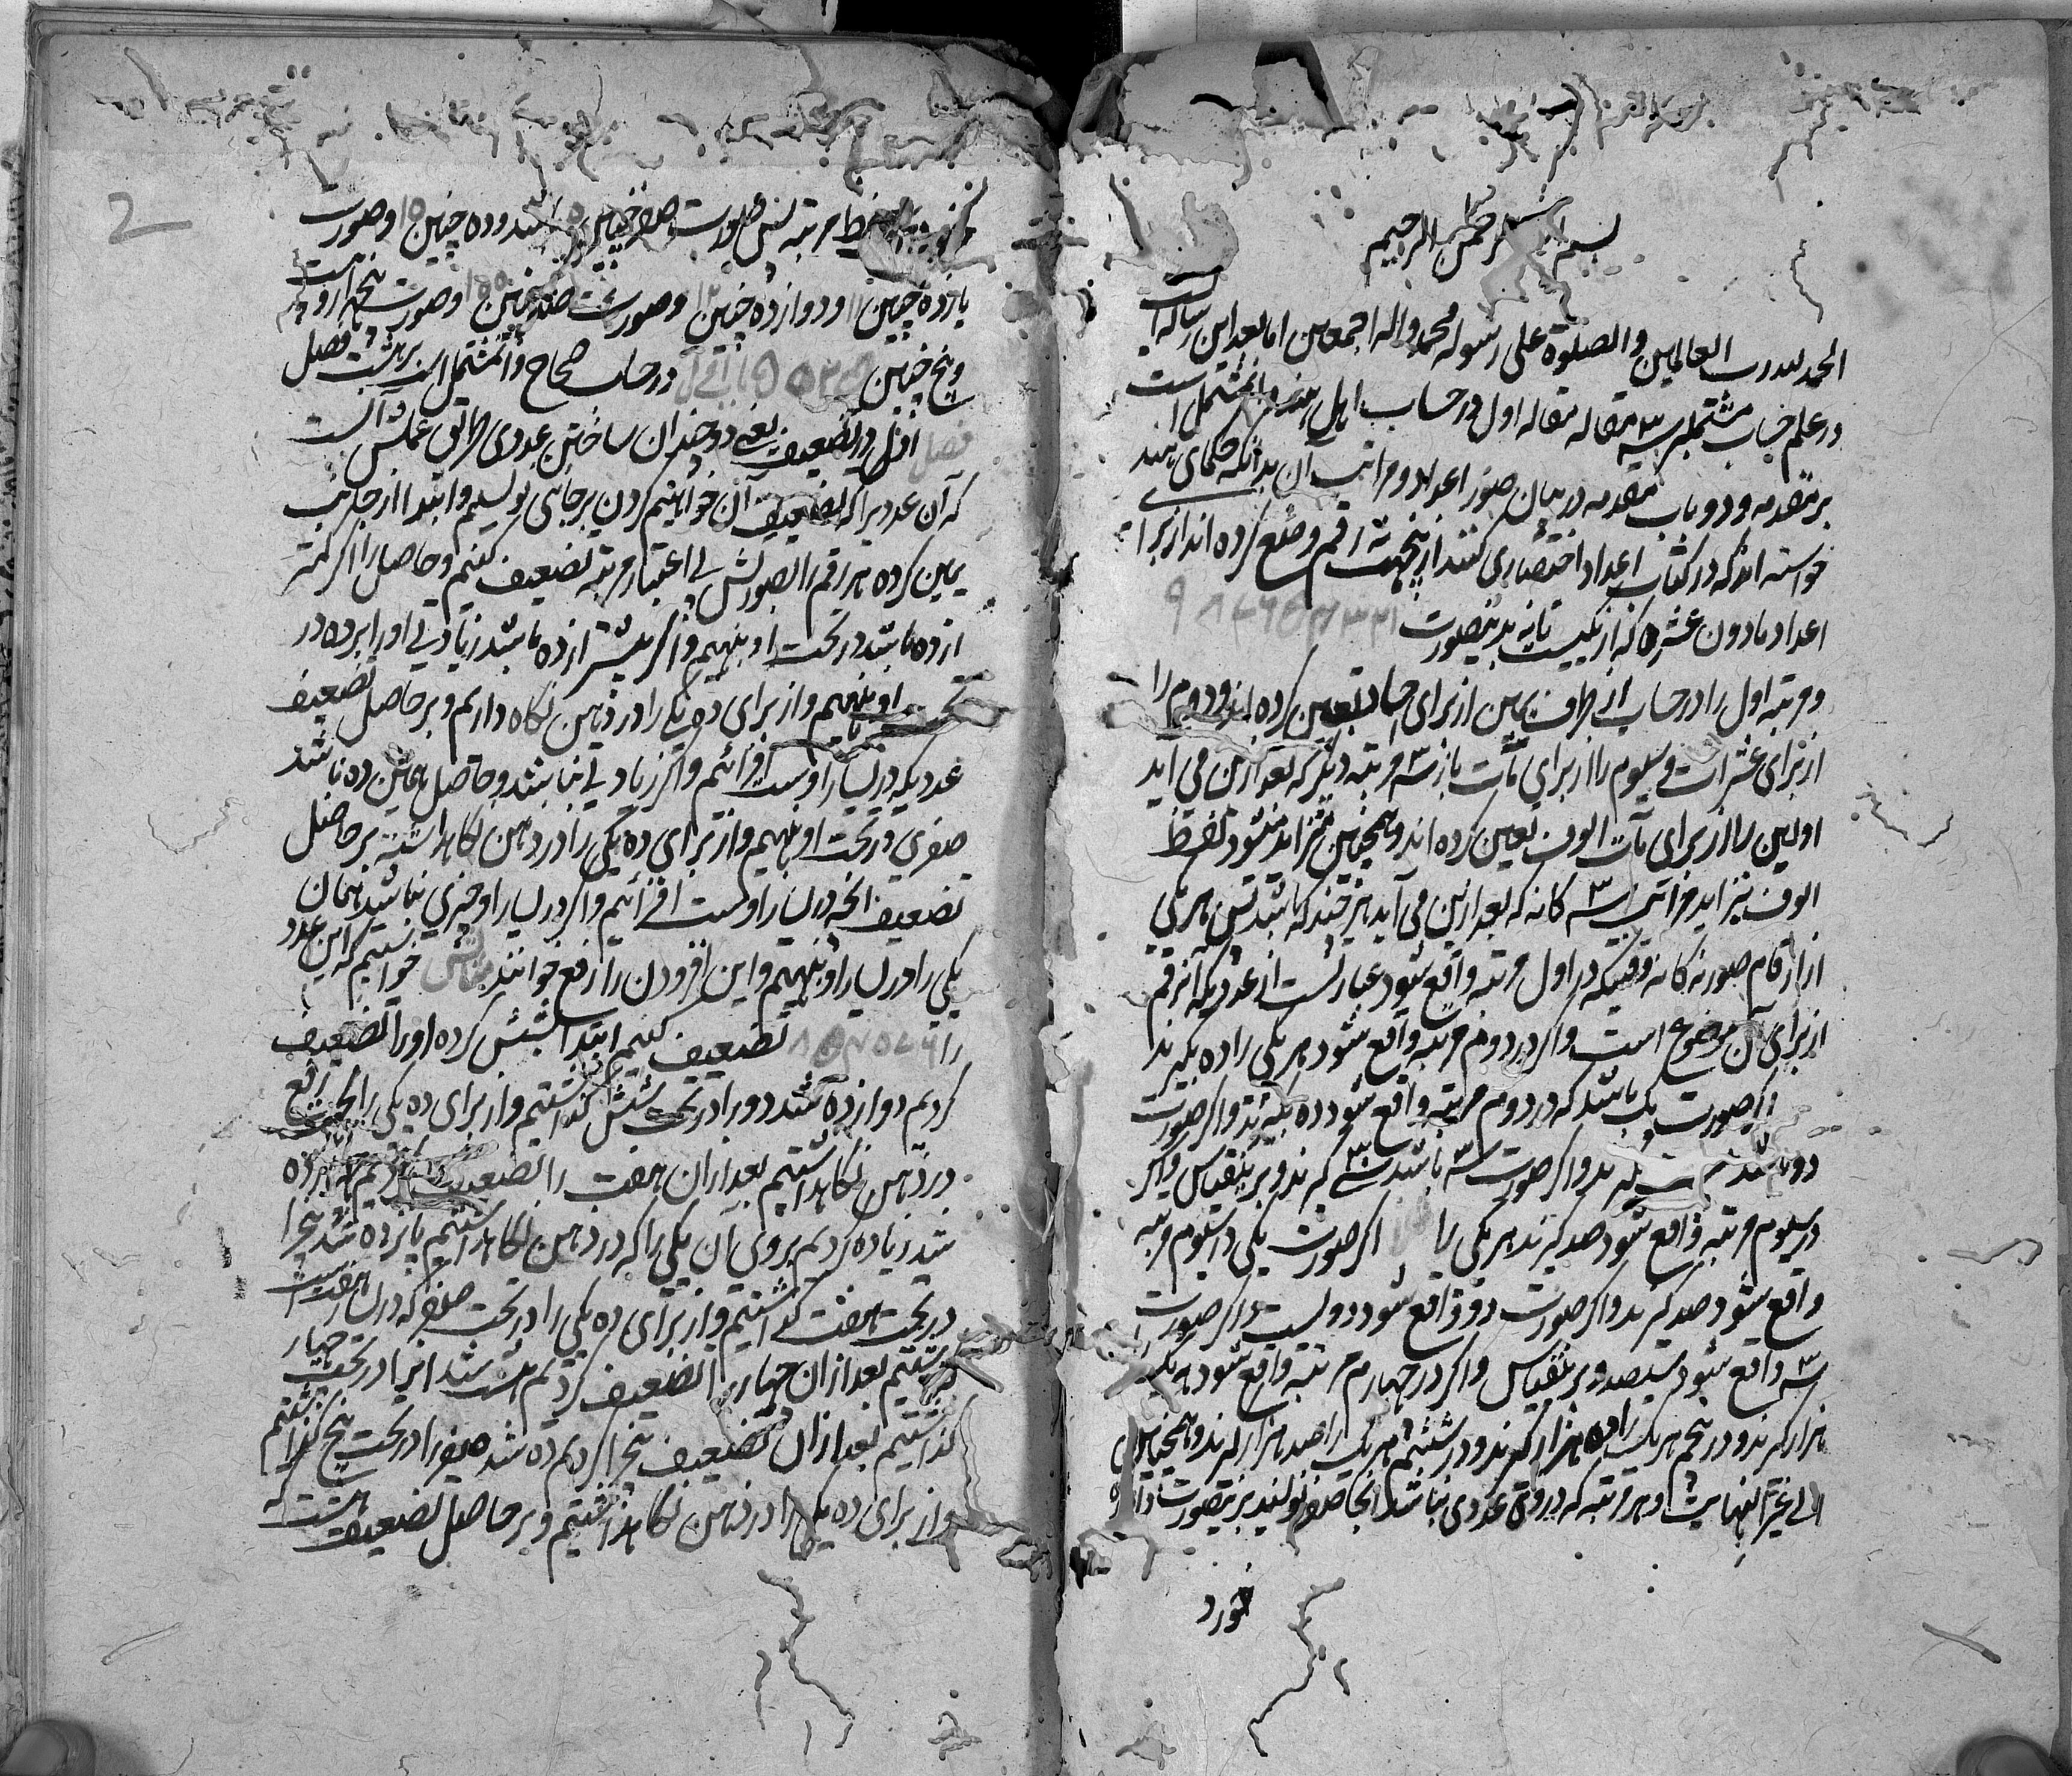 بسم الله الرحمن الرحیم
الحمد لله رب العالمین والصلوة علی رسوله محمد واله اجمعین اما بعد این رساله ایست
در علم حساب مشتمل بر سه ۳ مقاله مقاله اول در حساب اهل هند و آن مشتمل است
بر مقدمه و دو باب مقدمه در بیان صور اعداد و مراتب آن بدانکه حکمای هند
خواسته اند که در کتاب اعداد اختصاری کنند ازینجهت نه رقم وضع کرده اند از برای
اعداد مادون عشره که از یکیست تا نه بدینصورت ۱ ۲ ۳ ۴ ۵ ۶ ۷ ۸ ۹
و مرتبه اول را در حساب از طرف یمین از برای احاد تعین کرده اند و دوم را
از برای عشرات و سیوم را از برای مآت باز سه مرتبه دیگر که بعد ازین می آید
اولین را از برای الوف تعین کرده اند و همچنین متزاید میشود لفظ
الوف بتزاید مراتب سه ۳ کانه که بعد ازین می آید هر چند که باشد پس هر یکی
از ارقام صور نه کانه وقتیکه در اول مرتبه واقع شود عبارتست از عددیکه آنرقم
از برای آن موضوع است و اگر در دوم مرتبه واقع شود هر یکی را ده گیرند
اگر صورت یک باشد که در دوم مرتبه واقع شود ده گیرند و اگر صورت
دو باشد بیست گیرند و اگر صورت سه باشد سی گیرند و برینقیاس و اگر
در سیوم مرتبه واقع شود صد گیرند هر یکی را اگر صورت یکی در سیوم مرتبه
واقع شود صد گیرند و اگر صورت دو واقع شود دویست و اگر صورت
سه واقع شود سیصد و برینقیاس و اگر در چهارم مرتبه واقع شود هر یک
هزار گیرند و در پنجم هر یک را ده هزار گیرند و در ششم هر یک را صد هزار گیرند و همچنین
الی غیر النهایت و هر مرتبه که در وی عددی نباشد آنجا صفر نویسند برینصورت
خورد
مرتبه پس صورت چنین باشد و ده چنین ۱۰ و صورت
یازده چنین ۱۱ و دوازده چنین ۱۲ و صورت صد چنین ۱۰۰ و صورت پنجهزار و
و پنج چنین باب اول در حساب صحاح و آن مشتمل است بر هشت فصل
فصل اول در تضعیف یعنی دو چندان ساختن عددی طریق عملش آنست
که آن عدد یرا که تضعیف آن خواهیم کردن بر جای نویسیم و ابتدا از جانب
یمین کرده هر رقم را بصورتش بی اعتبار مرتبه تضعیف کنیم و حاصل را اگر کمتر
از ده باشد در تحت او بنهیم و اگر بیشتر از ده باشد زیادتی او را بر ده در
تحت او بنهیم و از برای ده یکی را در ذهن نگاه داریم و بر حاصل تضعیف
عددیکه در یسار اوست افزائیم و اگر زیادتی نباشد و حاصل همین ده باشد
صفری در تحت او بنهیم و از برای ده یکی را در ذهن نگاهداشته بر حاصل
تضعیف آنچه در یسار اوست افزائیم و اگر در یسار او چیزی نباشد همان
یکی را در یسار او بنهیم و این افزودن را رفع خوانند مثالش خواستیم که این عدد
را تضعیف کنیم ابتدا بشش کرده او را تضعیف
کردیم دوازده شد دو را در تحت شش گذاشتیم و از برای ده یکی را بجهت رفع
در ذهن نگاهداشتیم بعد ازان هفت را تضعیف کردیم چهارده
شد زیاده کردیم بروی آن یکی را که در ذهن نگاهداشتیم پانزده شد پنج را
در تحت هفت گذاشتیم و از برای ده یکی را در تحت صفر که در یسار هفت است
گذاشتیم بعد ازان چهار را تضعیف کردیم هشت شد انرا در تحت چهار
گذاشتیم بعد ازان تضعیف پنج را کردیم ده شد صفر را در تحت پنج گذاشتیم
و از برای ده یکی را در ذهن نگاهداشتیم و بر حاصل تضعیف هشت که
2